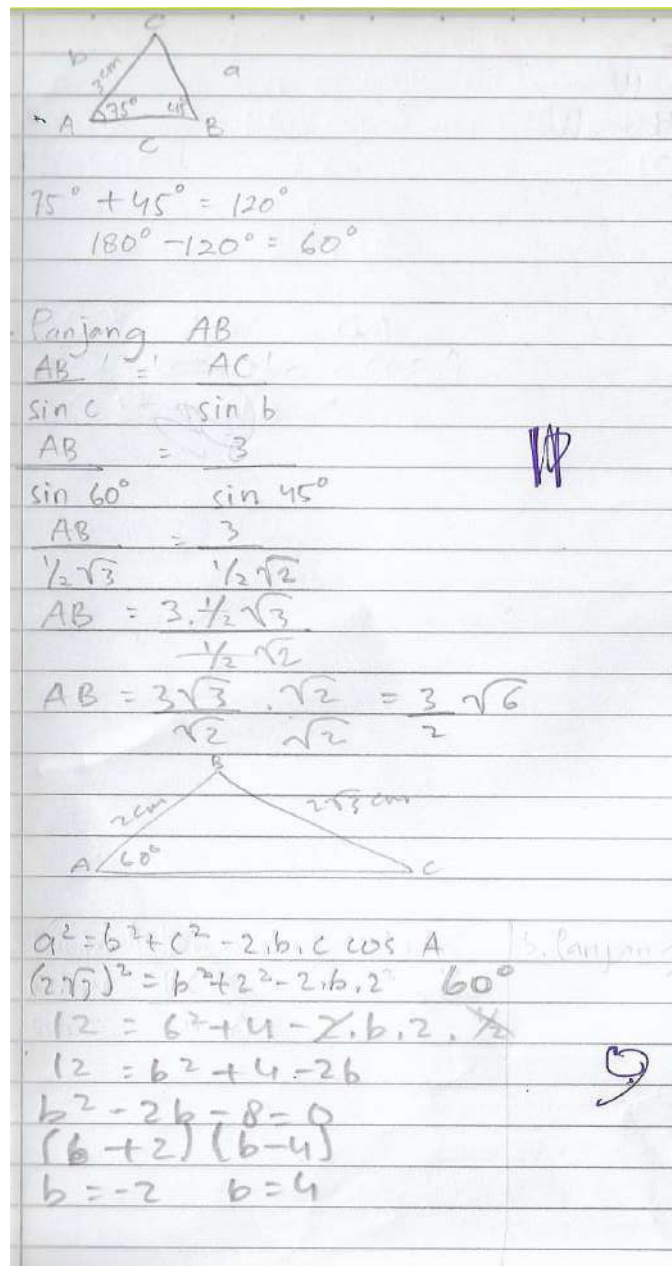 C
b 3cm a
A 75° 45° B
C
75° + 45° = 120°
180° - 120° = 60°
Panjang AB
AB = AC
sin c sin b
AB = 3
sin 60° sin 45°
AB = 3
1/2 √3 1/2 √2
AB = 3 . 1/2 √3
1/2 √2
AB = 3√3 . √2 = 3 √6
√2 √2 2
B
2cm 2√3 cm
A 60° C
a² = b² + c² - 2.b.c cos A
b. Panjang
(2√3)² = b² + 2² - 2.b.2 60°
12 = b² + 4 - 2.b.2 . 1/2
12 = b² + 4 - 2b
b² - 2b - 8 = 0
(b + 2) (b - 4)
b = -2 b = 4